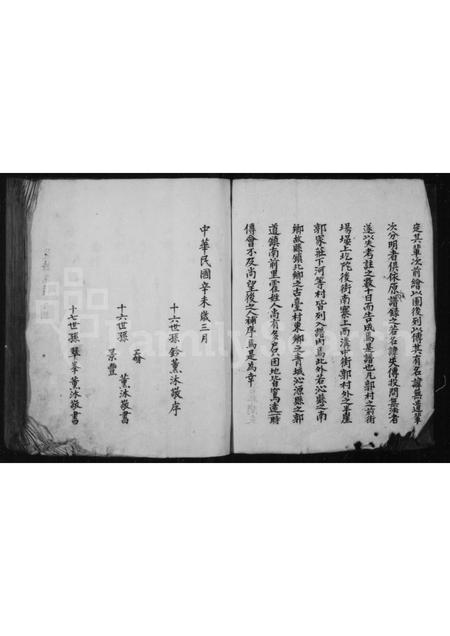 定其輩次前繪以圖後列以傳其有名諱無遺輩
次分明者俱依原譜錄之若名諱失傳投問無稽者
遂以失考註之數十日而告成焉是譜也凡郭村之前街
場堰上圪陀後街南寨上西溝中街郭村外之羊崖
郭家莊下河等村皆列入譜內焉此外若沁縣之南
鄉故縣鎮北鄉之古臺村東鄉之青城沁源縣之郭
道鎮南前里霍姓人尚有多戶只因地皆窵遠一時
傳會不及尚望後之人補序焉是為幸
中華民國辛未歲三月
十六世孫 鈴 薰沐敬序
十六世孫 景豐 薰沐敬書
十七世孫 峯 薰沐敬書
FamilySearch